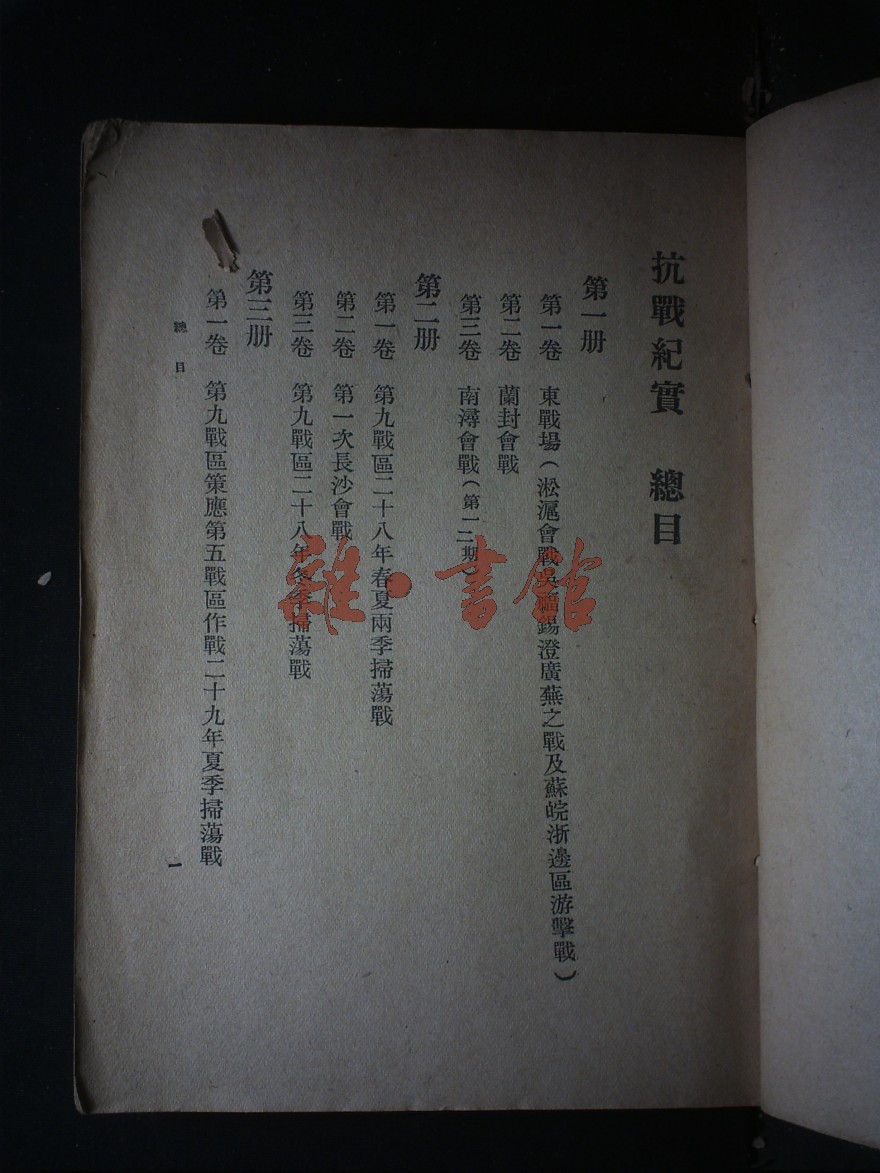 抗戰紀實　總目
第一册
第一卷　東戰場（淞滬會戰吳福錫澄廣蕪之戰及蘇皖浙邊區游擊戰）
第二卷　蘭封會戰
第三卷　南潯會戰（第一二期）
第二册
第一卷　第九戰區二十八年春夏兩季掃蕩戰
第二卷　第一次長沙會戰
第三卷　第九戰區二十八年冬季掃蕩戰
第三册
第一卷　第九戰區策應第五戰區作戰二十九年夏季掃蕩戰
總目
一
雜·書館